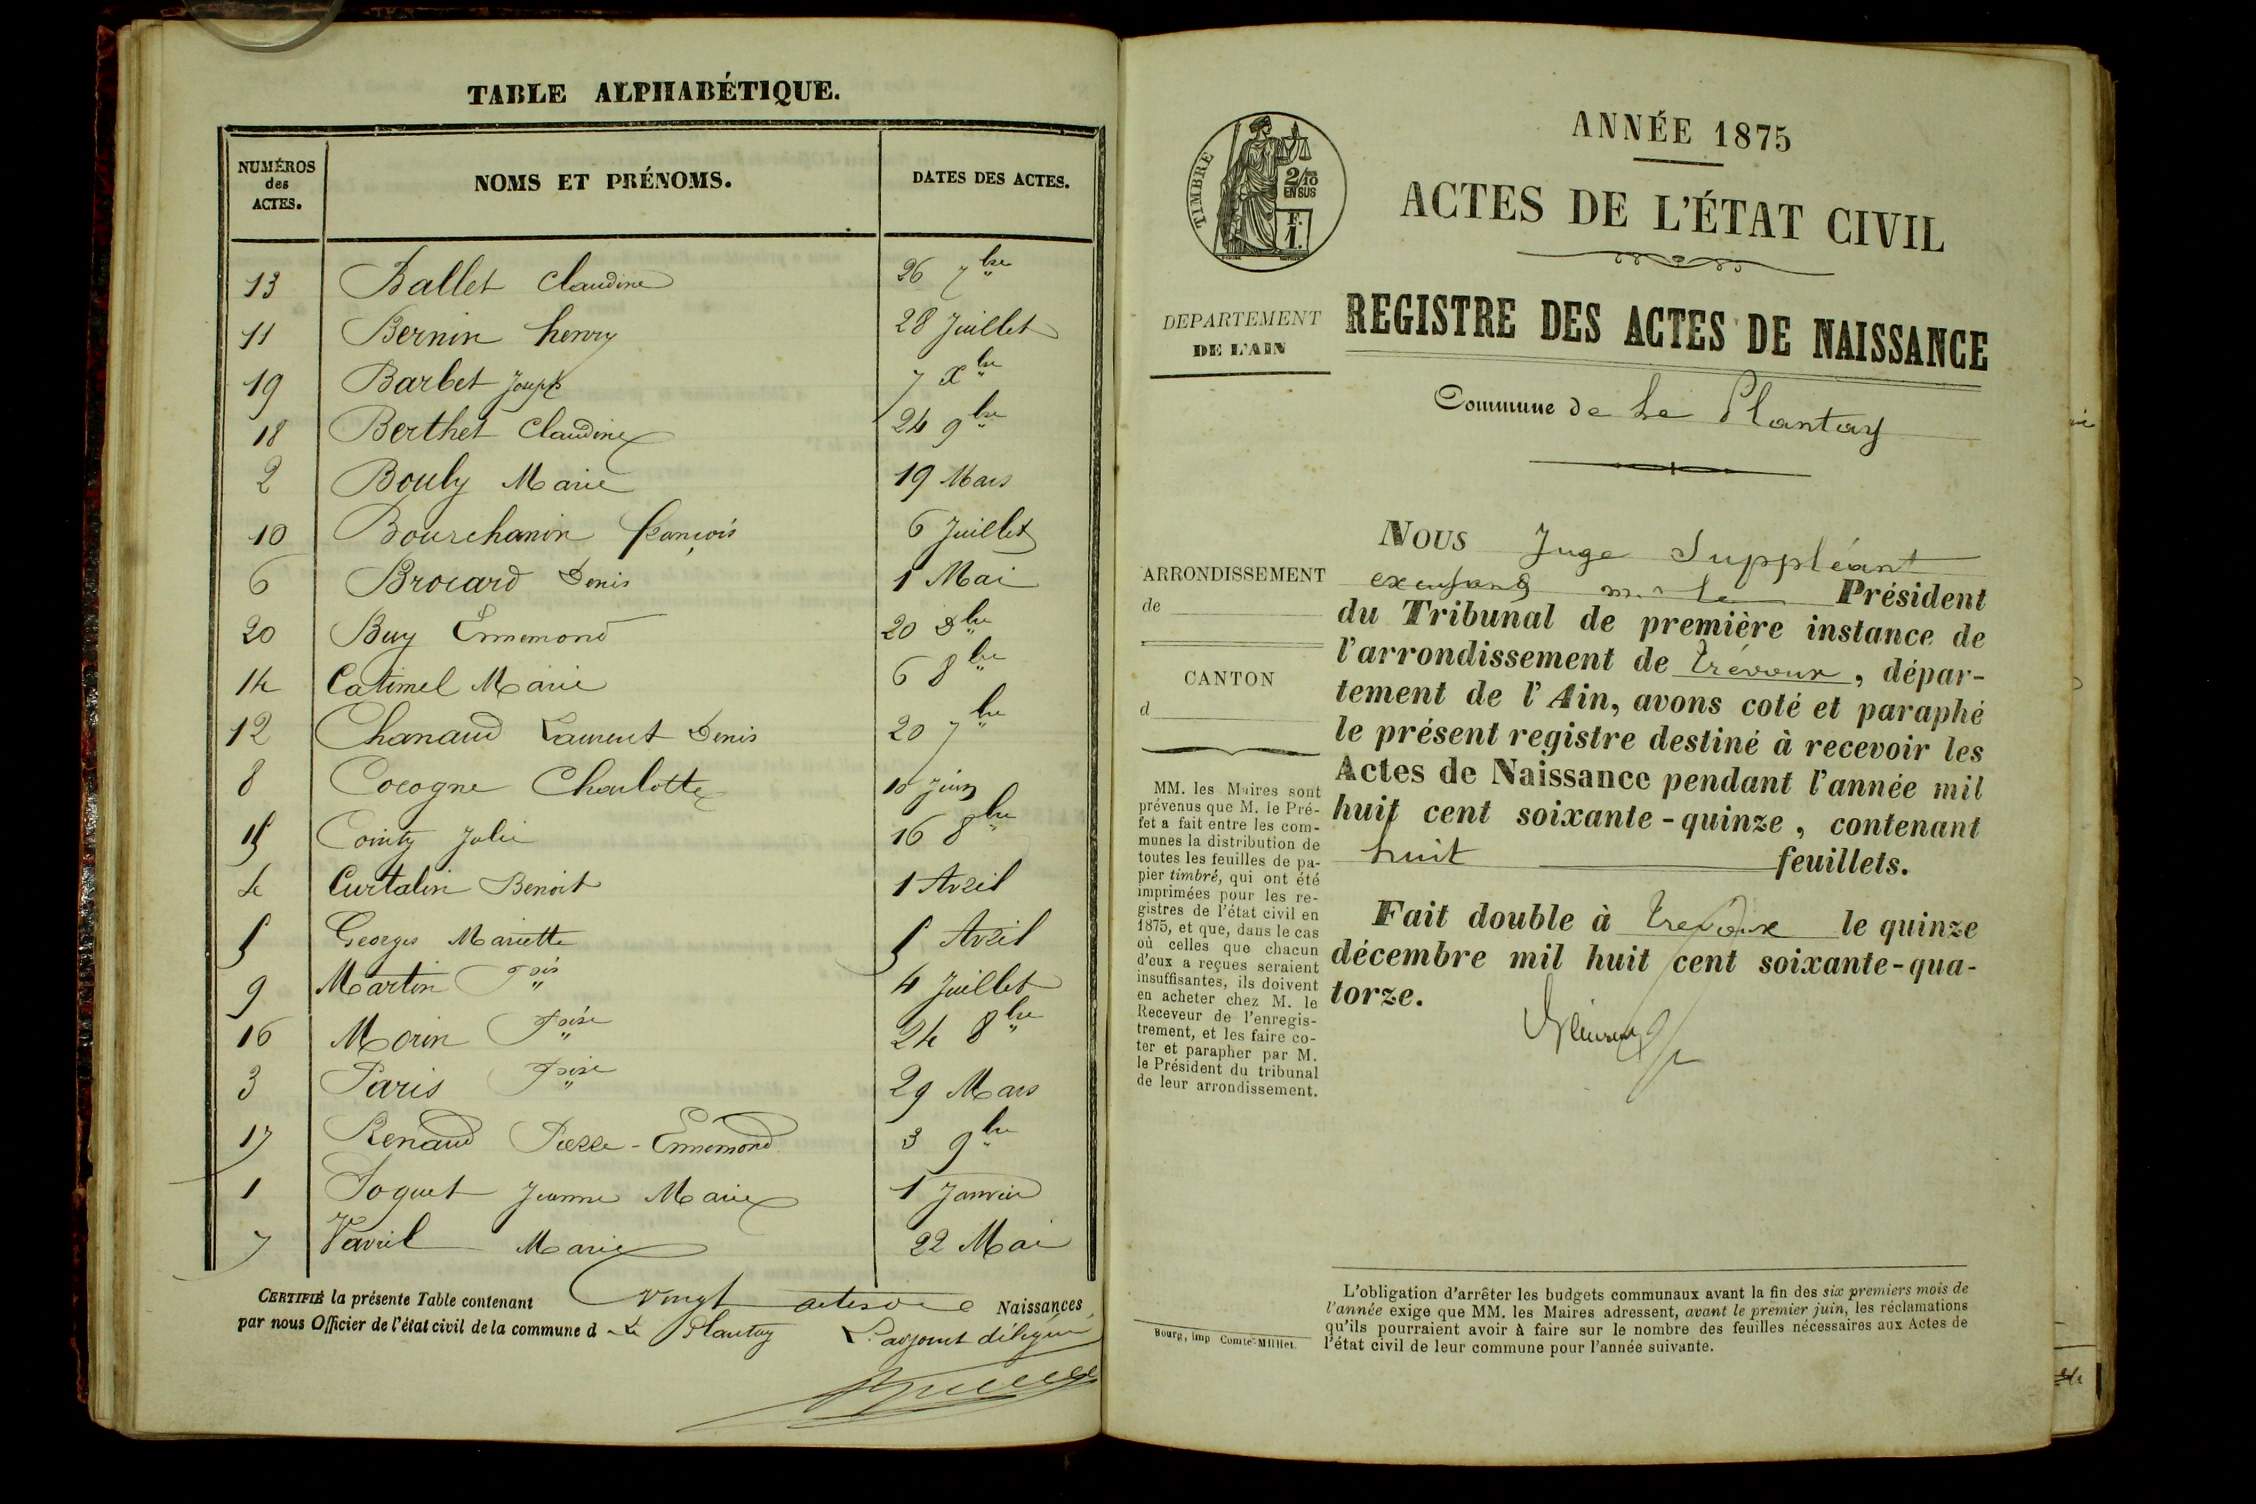 TABLE ALPHABÉTIQUE.
NUMÉROS des ACTES. NOMS ET PRÉNOMS. DATES DES ACTES.
13 Ballet Claudine 26 7bre
11 Bernin henry 28 Juillet
19 Barbet Joseph 7 Xbre
18 Berthet Claudine 24 9bre
2 Bouly Marie 19 Mars
10 Bourchanin françois 6 Juillet
6 Brocard Denis 1 Mai
20 Buy Ennemond 20 Xbre
14 Catimel Marie 6 8bre
12 Chanaud Laurent Denis 20 7bre
8 Cocogne Charlotte 10 Juin
15 Cointy Julie 16 8bre
4 Curtalin Benoit 1 Avril
5 Georges Mariette 5 Avril
9 Martin Fois 4 Juillet
16 Morin Foise 24 8bre
3 Paris Foise 29 Mars
17 Renaud Pierre-Ennemond 3 9bre
1 Soquet Jeanne Marie 1 Janvier
7 Vavril Marie 22 Mai
CERTIFIÉ la présente Table contenant vingt actes de Naissances
par nous Officier de l'état civil de la commune d Le Plantay L'adjoint délégué
ANNÉE 1875
ACTES DE L'ÉTAT CIVIL
TIMBRE
2/10 EN SUS
F. 1.
DEPARTEMENT
DE L'AIN
REGISTRE DES ACTES DE NAISSANCE
Commune de Le Plantay
ARRONDISSEMENT
de
CANTON
d
MM. les Maires sont
prévenus que M. le Pré-
fet a fait entre les com-
munes la distribution de
toutes les feuilles de pa-
pier timbré, qui ont été
imprimées pour les re-
gistres de l'état civil en
1875, et que, dans le cas
où celles que chacun
d'eux a reçues seraient
insuffisantes, ils doivent
en acheter chez M. le
Receveur de l'enregis-
trement, et les faire co-
ter et parapher par M.
le Président du tribunal
de leur arrondissement.
NOUS Juge Suppléant
Président
du Tribunal de première instance de
l'arrondissement de trévoux, dépar-
tement de l'Ain, avons coté et paraphé
le présent registre destiné à recevoir les
Actes de Naissance pendant l'année mil
huit cent soixante-quinze, contenant
huit feuillets.
Fait double à trevoux le quinze
décembre mil huit cent soixante-qua-
torze.
Bourg, imp Comte-Milliet.
L'obligation d'arrêter les budgets communaux avant la fin des six premiers mois de
l'année exige que MM. les Maires adressent, avant le premier juin, les réclamations
qu'ils pourraient avoir à faire sur le nombre des feuilles nécessaires aux Actes de
l'état civil de leur commune pour l'année suivante.